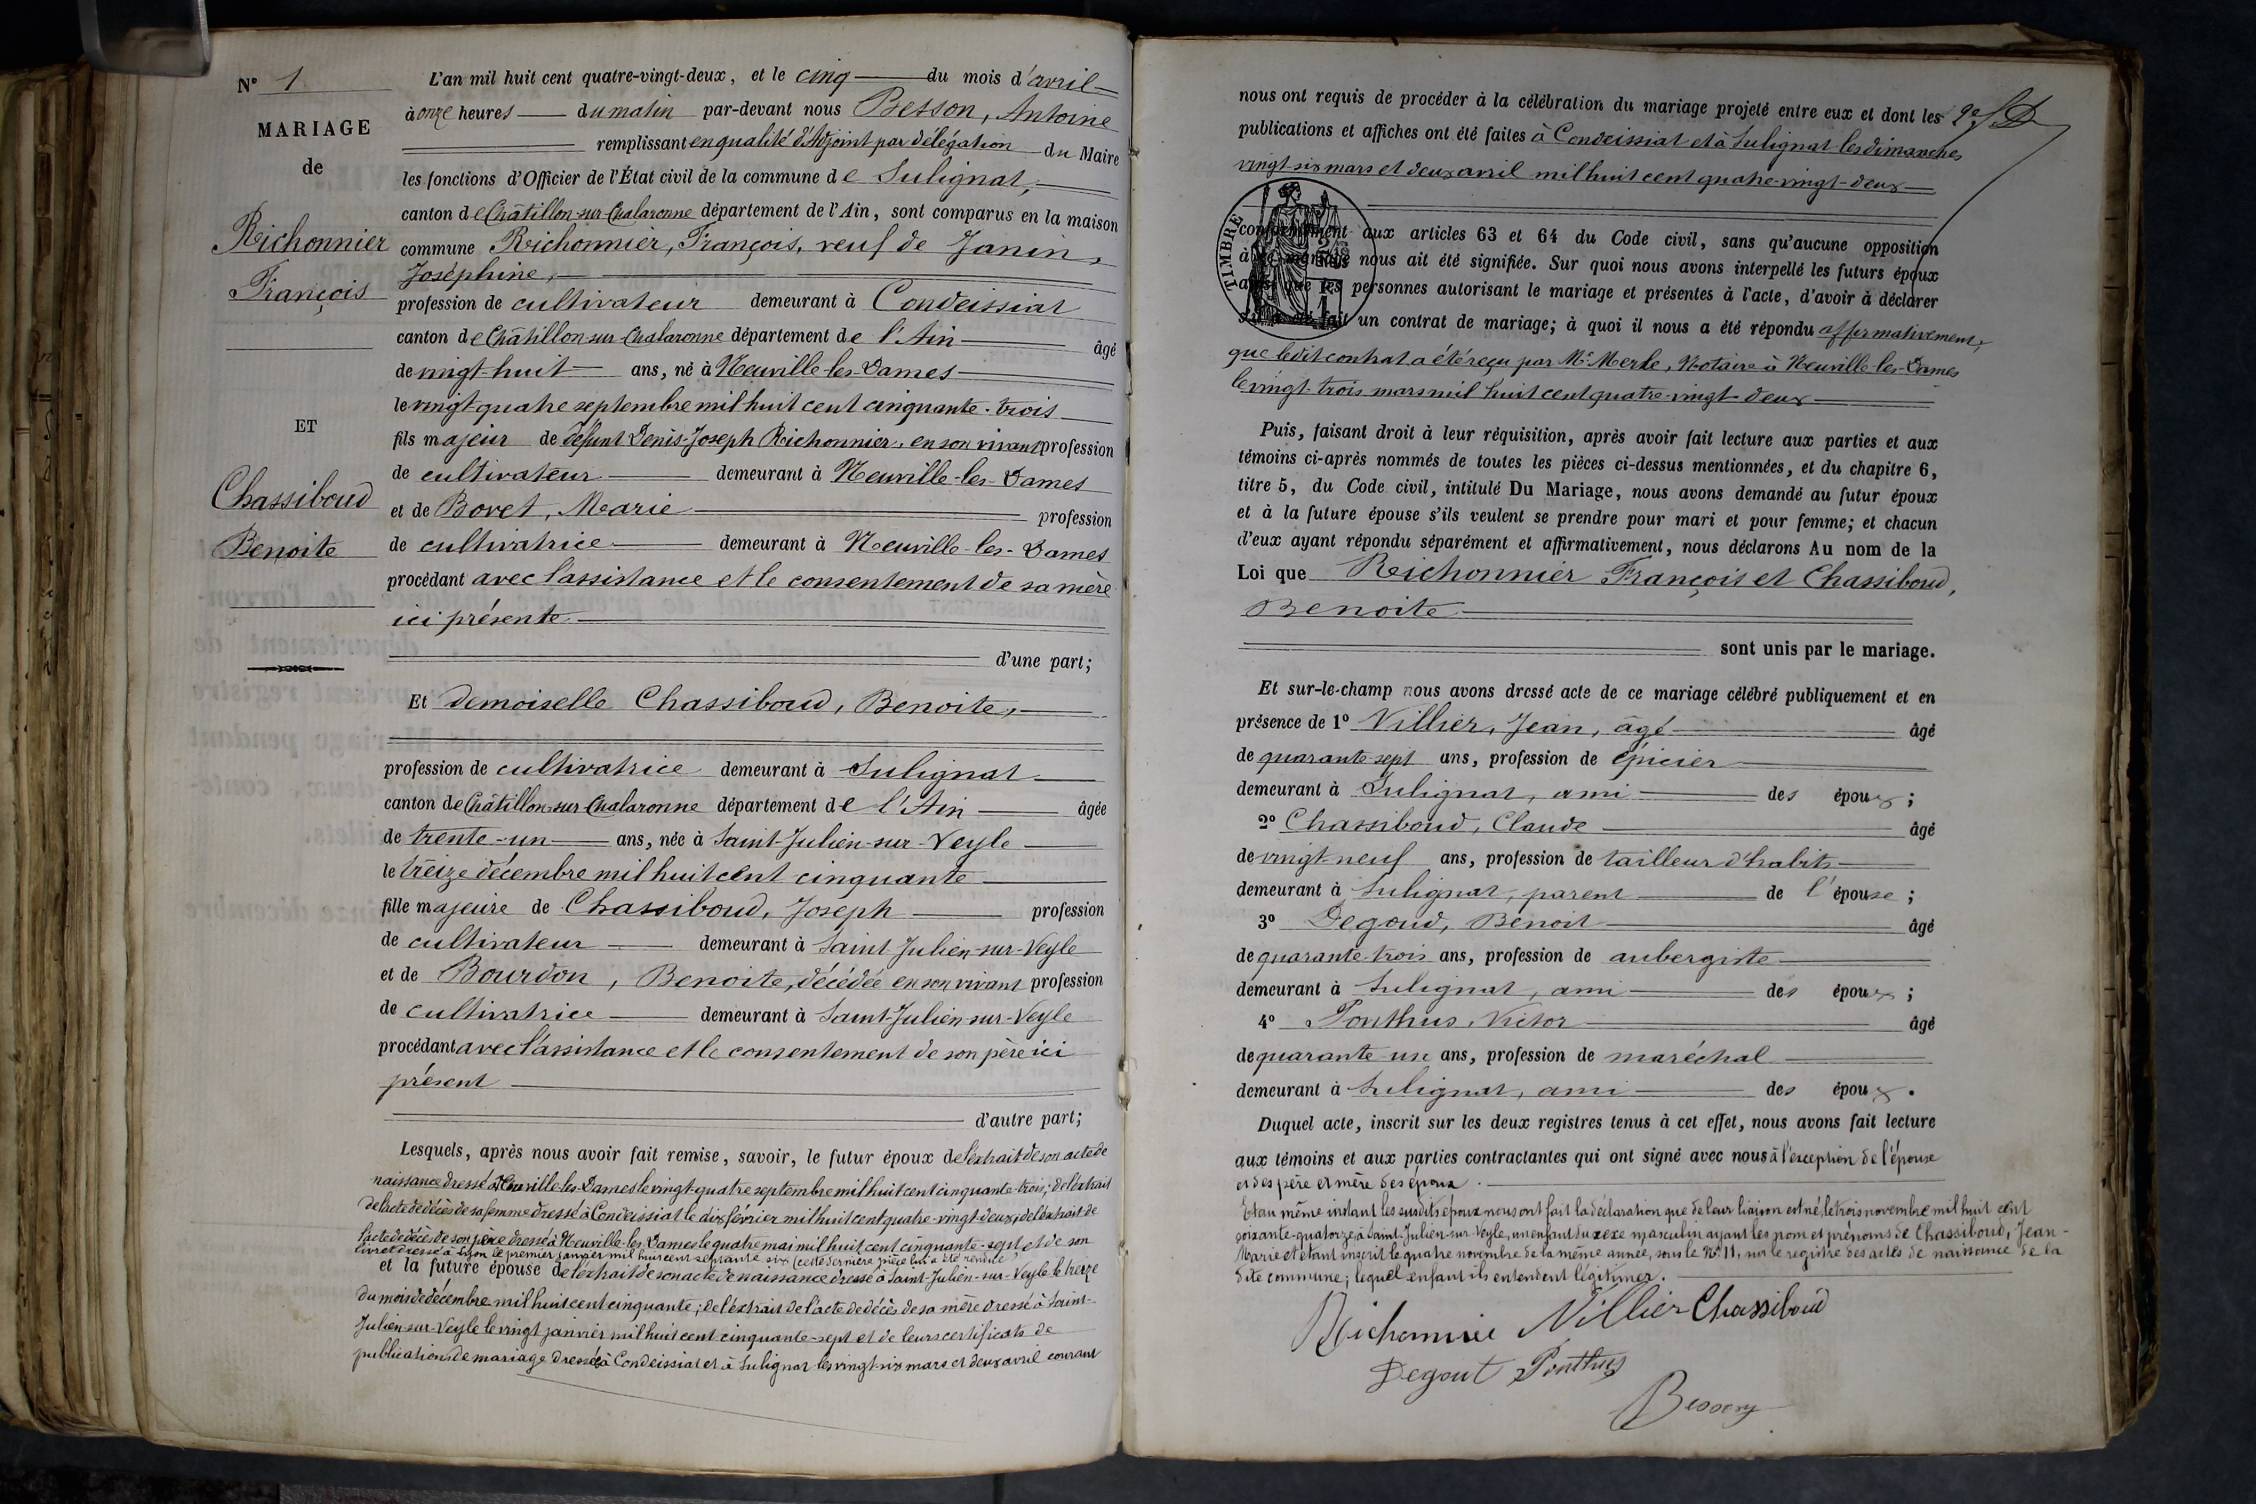 N° 1
MARIAGE
de
Richonnier
François
ET
Chassiboud
Benoite
L'an mil huit cent quatre-vingt-deux, et le cinq du mois d'avril
à onze heures du matin par-devant nous Besson, Antoine
remplissant en qualité d'Adjoint par délégation du Maire
les fonctions d'Officier de l'État civil de la commune de Sulignat,
canton de Châtillon-sur-Chalaronne département de l'Ain, sont comparus en la maison
commune Richonnier, François, veuf de Janin,
Joséphine,
profession de cultivateur demeurant à Condeissiat
canton de Châtillon-sur-Chalaronne département de l'Ain âgé
de vingt-huit ans, né à Neuville-les-Dames
le vingt-quatre septembre mil huit cent cinquante-trois
fils majeur de défunt Denis-Joseph Richonnier, en son vivant profession
de cultivateur demeurant à Neuville-les-Dames
et de Boret, Marie profession
de cultivatrice demeurant à Neuville-les-Dames
procédant avec l'assistance et le consentement de sa mère
ici présente
d'une part;
Et demoiselle Chassiboud, Benoite,
profession de cultivatrice demeurant à Sulignat
canton de Châtillon-sur-Chalaronne département de l'Ain âgée
de trente-un ans, née à Saint-Julien-sur-Veyle
le treize décembre mil huit cent cinquante
fille majeure de Chassiboud, Joseph profession
de cultivateur demeurant à Saint-Julien-sur-Veyle
et de Bourdon, Benoite, décédée en son vivant profession
de cultivatrice demeurant à Saint-Julien-sur-Veyle
procédant avec l'assistance et le consentement de son père ici
présent
d'autre part;
Lesquels, après nous avoir fait remise, savoir, le futur époux de l'extrait de son acte de
naissance dressé à Neuville-les-Dames le vingt-quatre septembre mil huit cent cinquante-trois; de l'extrait
de l'acte de décès de sa femme dressé à Condeissiat le dix février mil huit cent quatre-vingt-deux; de l'extrait de
l'acte de décès de son père dressé à Neuville-les-Dames le quatre mai mil huit cent cinquante-sept et de son
livret dressé à Lyon le premier janvier mil huit cent septante six (cette dernière pièce lui a été rendue
et la future épouse de l'extrait de son acte de naissance dressé à Saint-Julien-sur-Veyle le treize
du mois de décembre mil huit cent cinquante; de l'extrait de l'acte de décès de sa mère dressé à Saint-
Julien-sur-Veyle le vingt janvier mil huit cent cinquante-sept et de leurs certificats de
publications de mariage dressés à Condeissiat et à Sulignat les vingt-six mars et deux avril courant
nous ont requis de procéder à la célébration du mariage projeté entre eux et dont les
publications et affiches ont été faites à Condeissiat et à Sulignat les dimanches
vingt-six mars et deux avril mil huit cent quatre-vingt-deux
TIMBRE
conformément aux articles 63 et 64 du Code civil, sans qu'aucune opposition
à ce mariage nous ait été signifiée. Sur quoi nous avons interpellé les futurs époux
ainsi que les personnes autorisant le mariage et présentes à l'acte, d'avoir à déclarer
s'il a été fait un contrat de mariage; à quoi il nous a été répondu affirmativement,
que ledit contrat a été reçu par Me Merle, Notaire à Neuville-les-Dames
le vingt-trois mars mil huit cent quatre-vingt-deux
Puis, faisant droit à leur réquisition, après avoir fait lecture aux parties et aux
témoins ci-après nommés de toutes les pièces ci-dessus mentionnées, et du chapitre 6,
titre 5, du Code civil, intitulé Du Mariage, nous avons demandé au futur époux
et à la future épouse s'ils veulent se prendre pour mari et pour femme; et chacun
d'eux ayant répondu séparément et affirmativement, nous déclarons Au nom de la
Loi que Richonnier François et Chassiboud,
Benoite
sont unis par le mariage.
Et sur-le-champ nous avons dressé acte de ce mariage célébré publiquement et en
présence de 1° Villier, Jean, âgé âgé
de quarante-sept ans, profession de épicier
demeurant à Sulignat, ami des époux;
2° Chassiboud, Claude âgé
de vingt-neuf ans, profession de tailleur d'habits
demeurant à Sulignat, parent de l'épouse;
3° Degoud, Benoit âgé
de quarante-trois ans, profession de aubergiste
demeurant à Sulignat, ami des époux;
4° Ponthus, Victor âgé
de quarante-un ans, profession de maréchal
demeurant à Sulignat, ami des époux.
Duquel acte, inscrit sur les deux registres tenus à cet effet, nous avons fait lecture
aux témoins et aux parties contractantes qui ont signé avec nous à l'exception de l'épouse
et des père et mère des époux.
Et au même instant les susdits époux nous ont fait la déclaration que de leur liaison est né, le trois novembre mil huit cent
soixante-quatorze à Saint-Julien-sur-Veyle, un enfant du sexe masculin ayant les nom et prénoms de Chassiboud, Jean-
Marie et étant inscrit le quatre novembre de la même année, sous le N° 11, sur le registre des actes de naissance de la
dite commune; lequel enfant ils entendent légitimer.
Richonnier Villier Chassiboud
Degout Ponthus
Besson